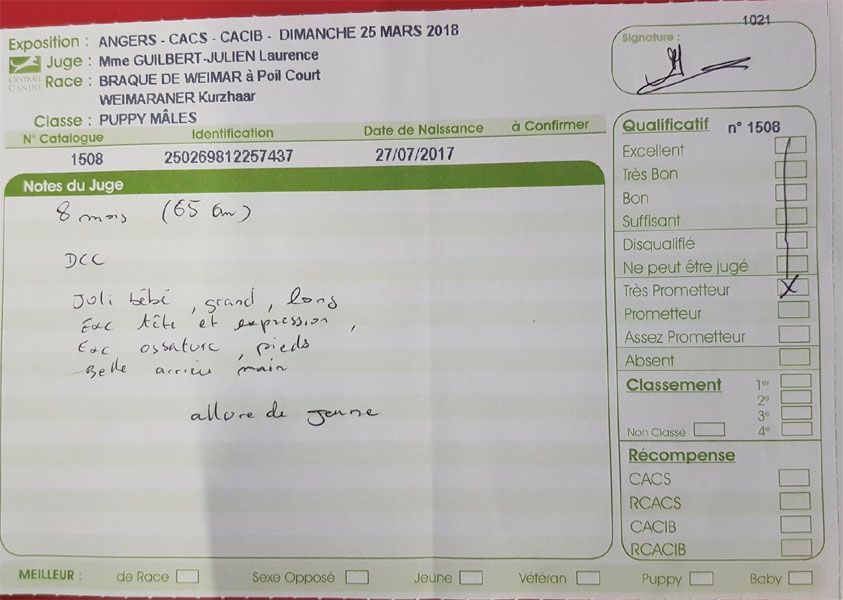 1021
Exposition : ANGERS - CACS - CACIB - DIMANCHE 25 MARS 2018
Signature :
CENTRALE CANINE
Juge : Mme GUILBERT-JULIEN Laurence
Race : BRAQUE DE WEIMAR à Poil Court
WEIMARANER Kurzhaar
Classe : PUPPY MÂLES
N° Catalogue Identification Date de Naissance à Confirmer
1508 250269812257437 27/07/2017
Notes du Juge
8 mois (65 cm)
DCC
Joli bébé, grand, long
Exc tête et expression,
Exc ossature, pieds
Belle arrière main
allure de jeune
Qualificatif n° 1508
Excellent
Très Bon
Bon
Suffisant
Disqualifié
Ne peut être jugé
Très Prometteur X
Prometteur
Assez Prometteur
Absent
Classement 1er
2e
3e
Non Classé 4e
Récompense
CACS
RCACS
CACIB
RCACIB
MEILLEUR : de Race Sexe Opposé Jeune Vétéran Puppy Baby